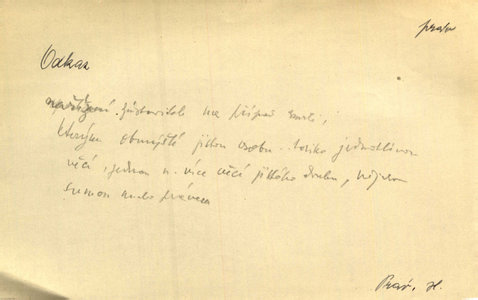 právo
Odkaz
nařízení zůstavitele na případ smrti,
kterým obmýšlí jistou osobu toliko jednotlivou
věcí, jednou n. více věcí jistého druhu, nějakou
sumou nebo právem
Práv. H.